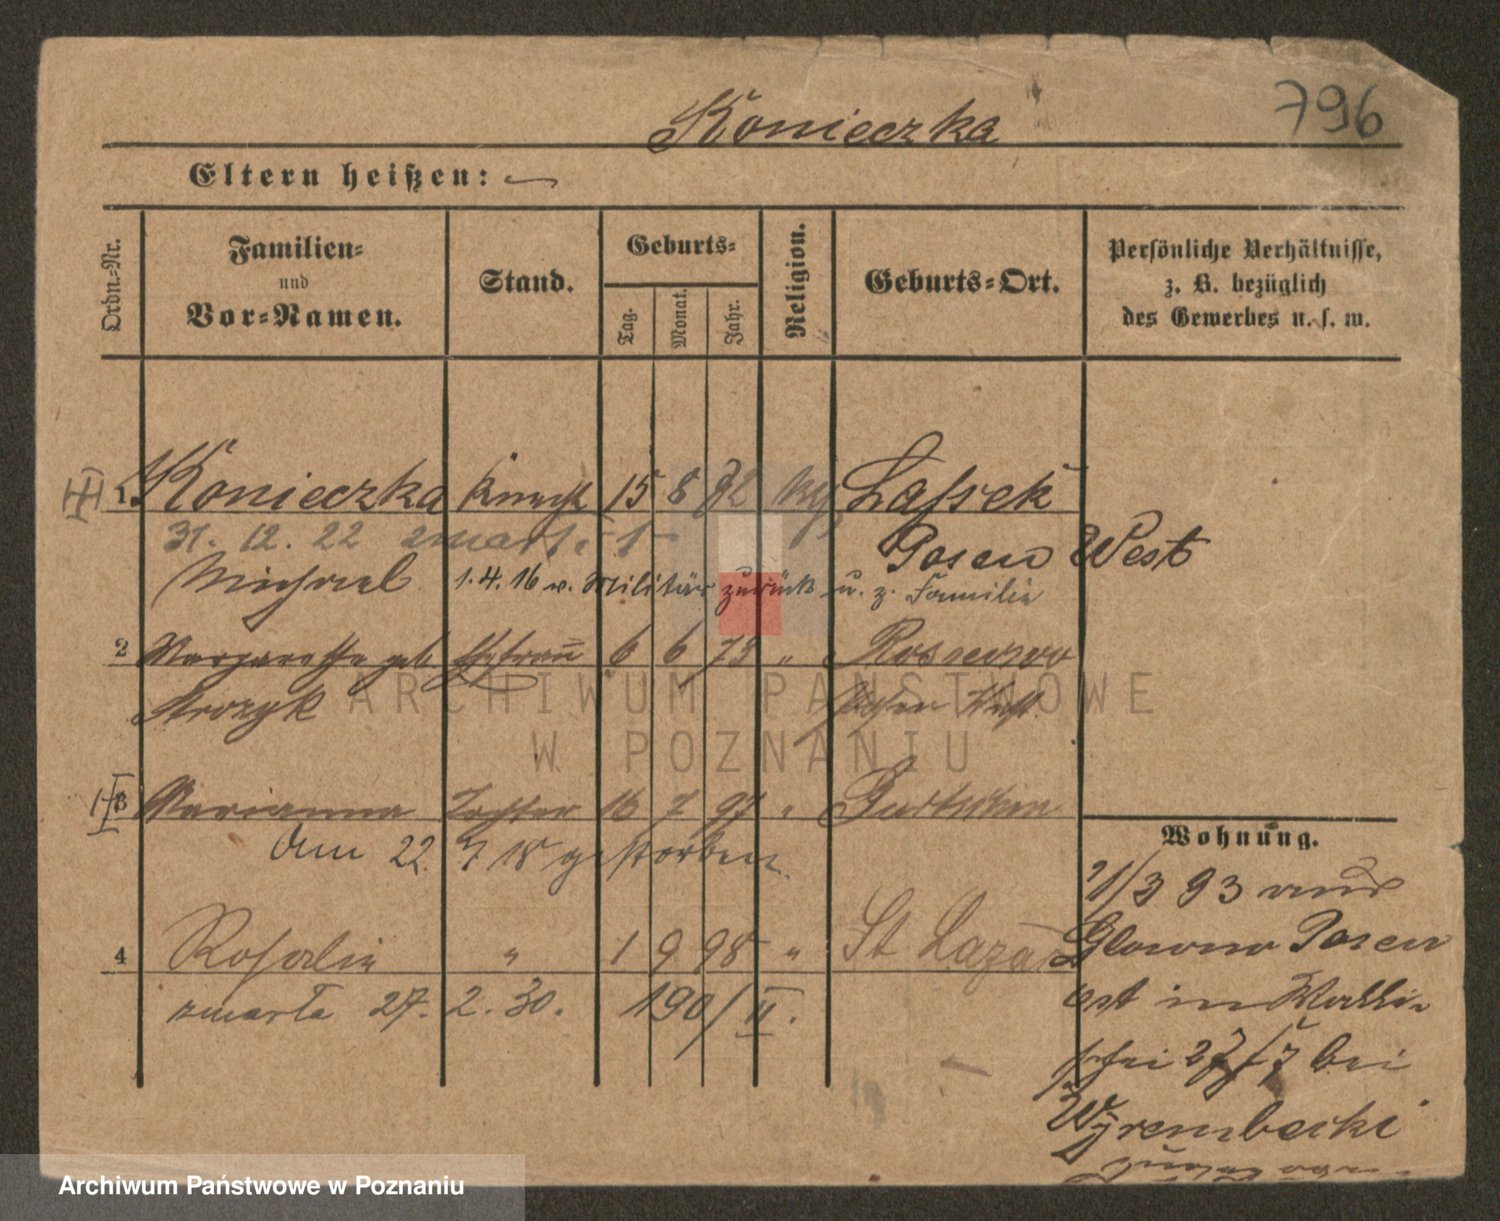 796
Konieczka
Eltern heißen: —
Ordn.-Nr.
Familien-
und
Vor-Namen.
Stand.
Geburts-
Tag.
Monat.
Jahr.
Religion.
Geburts-Ort.
Persönliche Verhältnisse,
z. B. bezüglich
des Gewerbes u. s. w.
1. Konieczka Knecht 15 8 72 Lassek
31. 12. 22 zmarł Posen West
Michael 1. 4. 16 v. Militär zurück u. z. Familie
2 Margarethe geb. Ehefrau 6 6 73 "
Strozyk Posen West
3 Marianna Tochter 16 7 97 "
Am 22. 7 18 gestorben.
4 Rosalie " 1 9 98 " St Lazar
zmarła 27. 2. 30. 190/II.
Wohnung.
21/3 93 aus
Glowno Posen
Ost in
bei
Wyrembecki
zugezogen
ARCHIWUM PAŃSTWOWE
W POZNANIU
Archiwum Państwowe w Poznaniu